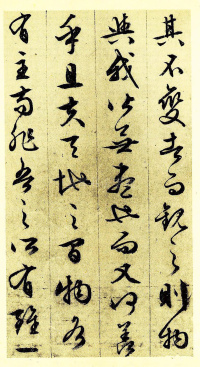 其不變者而觀之則物
與我皆無盡也而又何羨
乎且夫天地之間物各
有主苟非吾之所有雖一